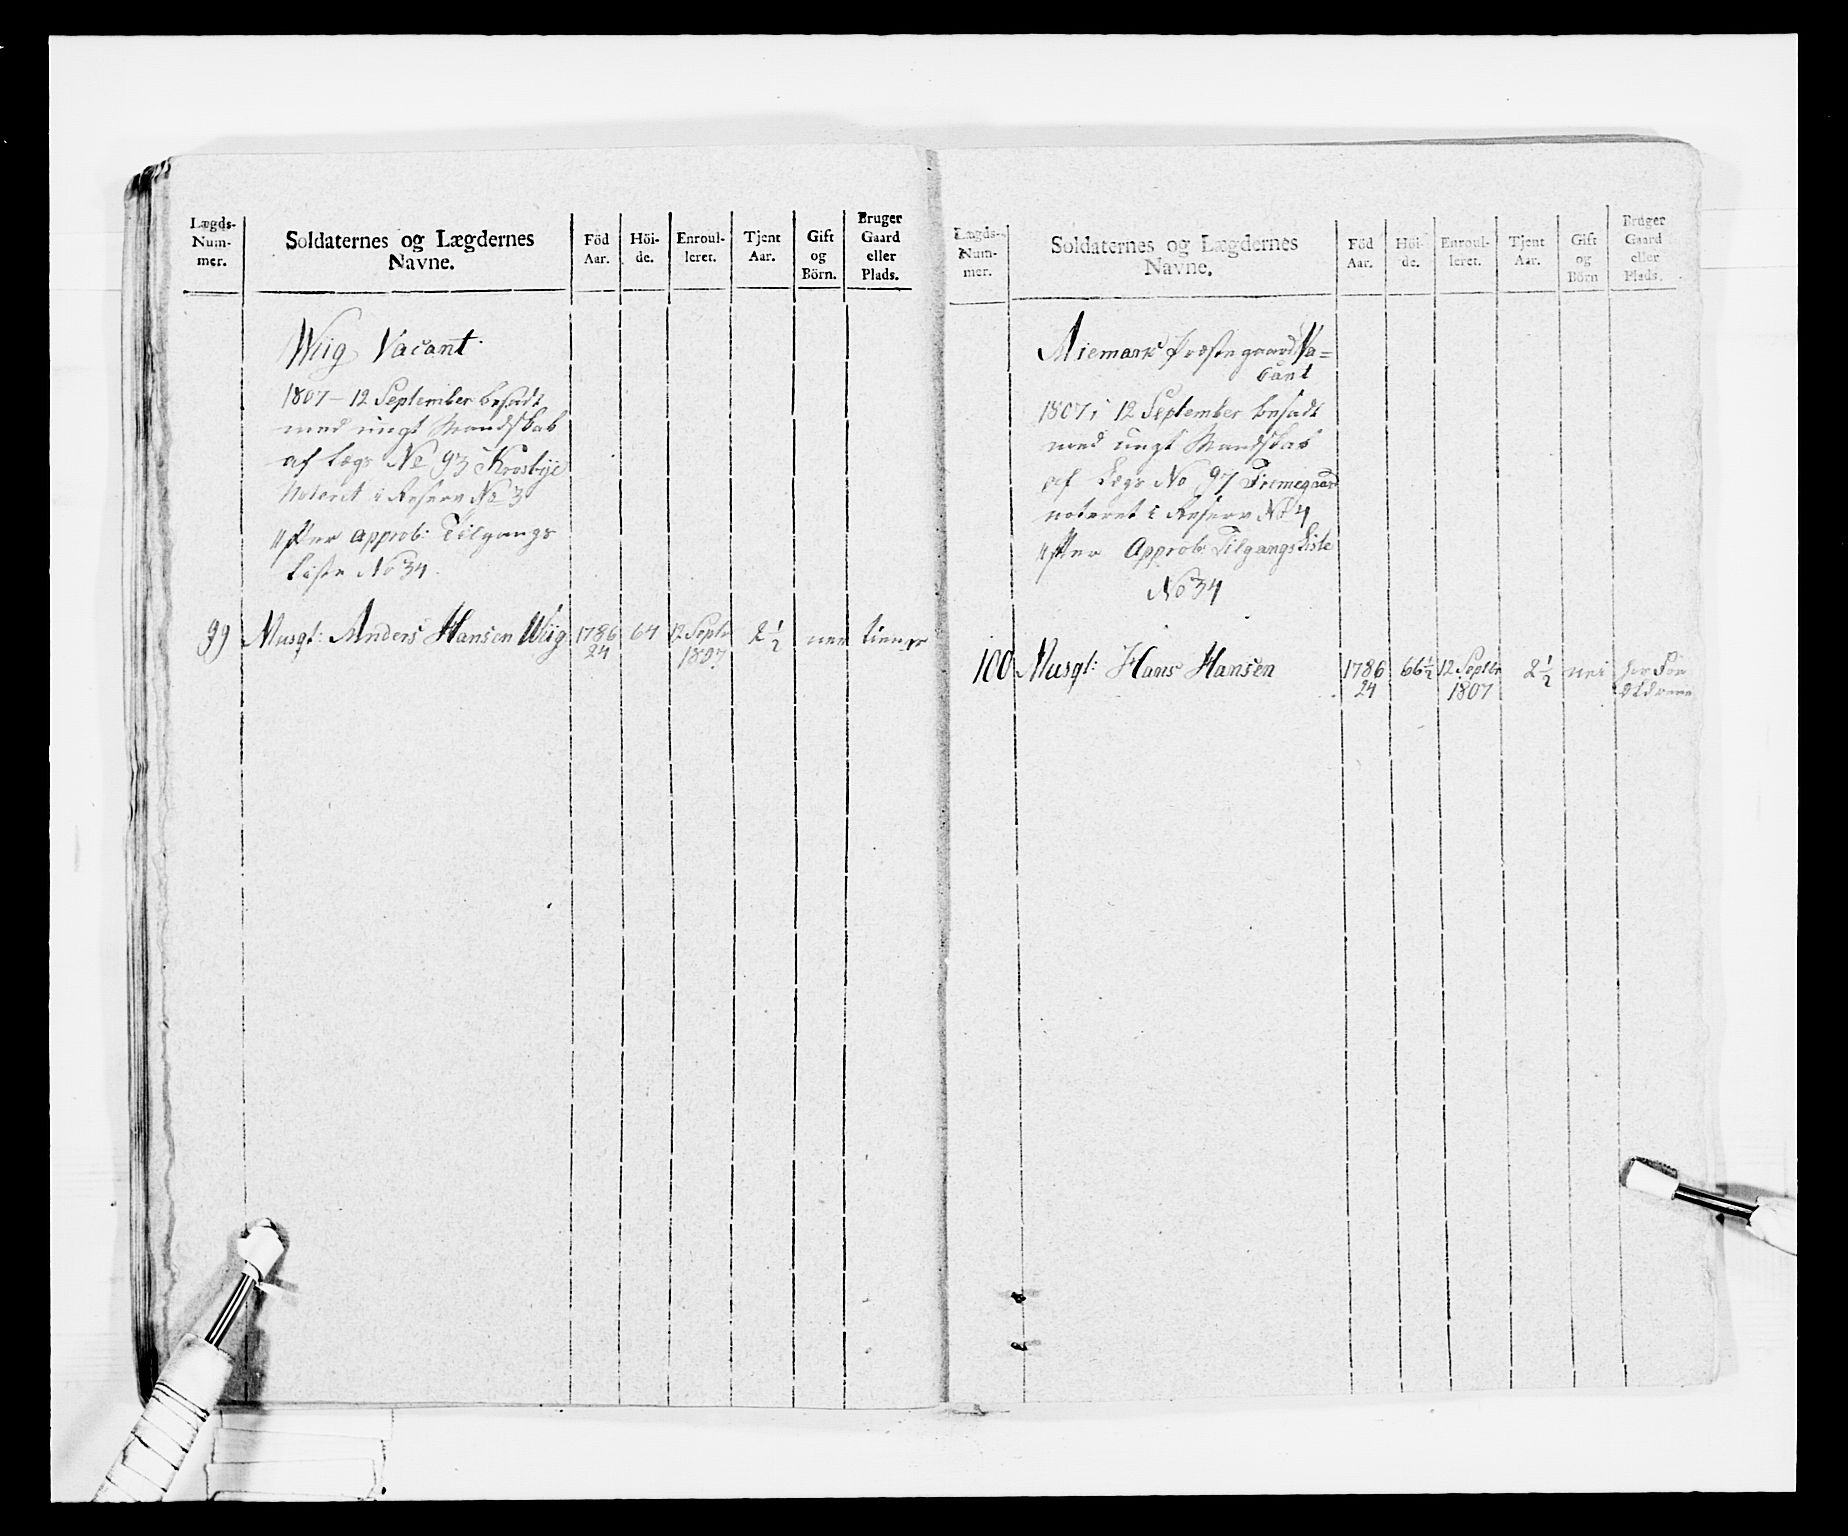 Lægds-
Num-
mer.
Soldaternes og Lægdernes
Navne.
Föd
Aar.
Höi-
de.
Enroul-
leret.
Tjent
Aar.
Gift
og
Börn.
Bruger
Gaard
eller
Plads.
Wiig Vacant
1807 - 12 September besadt
med ungt Mandskab
af Lægs No 93 Krosbye
Noteret i Reserv No 3
efter approb: Tilgangs
Liste No 34.
99 Musqt: Anders Hansen Wiig 1786 64 12 Septr 2 1/2 nei tiener
24 1807
Lægds-
Num-
mer.
Soldaternes og Lægdernes
Navne.
Föd
Aar.
Höi-
de.
Enroul-
leret.
Tjent
Aar.
Gift
og
Börn
Bruger
Gaard
eller
Plads.
Præstegaard Va=
cant
1807, 12 September besadt
med ungt Mandskab
af Lægs No 97
noteret i Reserv No 4
efter Approb: Tilgangs Liste
No 34
100 Musqt: Hans Hansen 1786 66 1/2 12 Septbr 2 1/2 nei hos For
24 1807 Ældrene